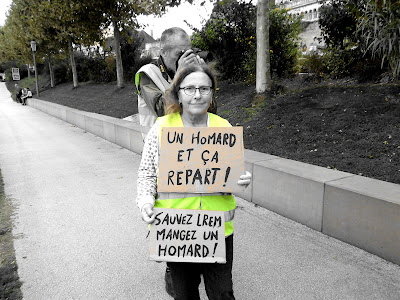 UN HOMARD
ET ÇA
REPART !
SAUVEZ LREM
MANGEZ UN
HOMARD !